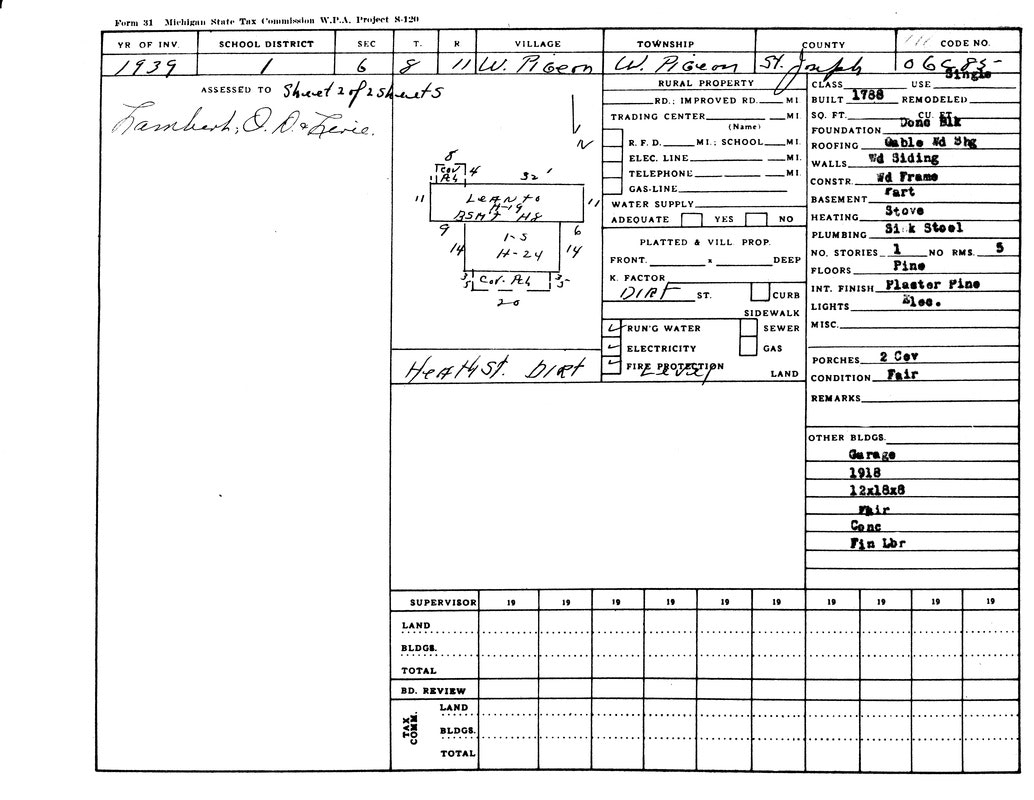 Form 31 Michigan State Tax Commission W.P.A. Project S-120
YR OF INV. SCHOOL DISTRICT SEC T. R VILLAGE TOWNSHIP COUNTY CODE NO.
1939 1 6 8 11 W. Pigeon W. Pigeon St. Joseph
ASSESSED TO Sheet 2 of 2 Sheets
Lambert, O. D. &
N
8
Cov Pch 4
11 32' 11
Lean to
H-19
BSMT H8
9 6
14 1-S 14
H-24
3/5 Cov. Pch 3/5
20
Heath St. Dirt
RURAL PROPERTY
RD.; IMPROVED RD. MI.
TRADING CENTER MI.
(Name)
R. F. D. MI.; SCHOOL MI.
ELEC. LINE MI.
TELEPHONE MI.
GAS-LINE
WATER SUPPLY
ADEQUATE YES NO
PLATTED & VILL PROP.
FRONT. x DEEP
K. FACTOR
Dirt ST. CURB
SIDEWALK
✓ RUN'G WATER SEWER
✓ ELECTRICITY GAS
✓ FIRE PROTECTION
Level LAND
CLASS USE Single
BUILT 1788 REMODELED
SQ. FT. CU. FT.
FOUNDATION Conc Blk
ROOFING Gable Wd Shg
WALLS Wd Siding
CONSTR. Wd Frame
BASEMENT Part
HEATING Stove
PLUMBING Sink Stool
NO. STORIES 1 NO RMS. 5
FLOORS Pine
INT. FINISH Plaster Pine
LIGHTS Elec.
MISC.
PORCHES 2 Cov
CONDITION Fair
REMARKS
OTHER BLDGS.
Garage
1918
12x18x8
Fair
Conc
Fin Lbr
SUPERVISOR 19 19 19 19 19 19 19 19 19
LAND
BLDGS.
TOTAL
BD. REVIEW
TAX COMM.
LAND
BLDGS.
TOTAL